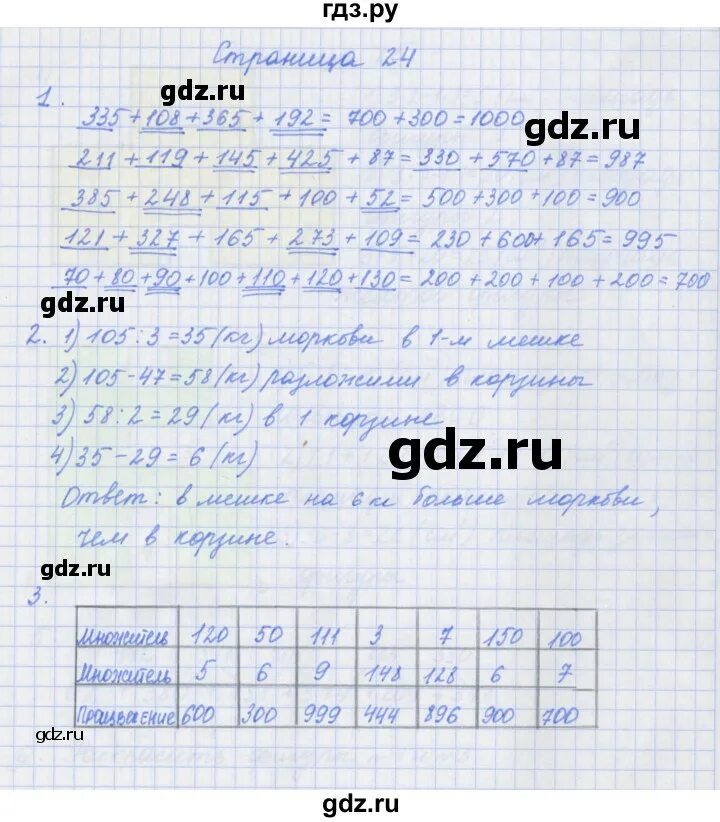 гдз.ру
Страница 24
gdz.ru
1. 335 + 108 + 365 + 192 = 700 + 300 = 1000
gdz.ru
211 + 119 + 145 + 425 + 87 = 330 + 570 + 87 = 987
385 + 248 + 115 + 100 + 52 = 500 + 300 + 100 = 900
121 + 327 + 165 + 273 + 109 = 230 + 600 + 165 = 995
70 + 80 + 90 + 100 + 110 + 120 + 130 = 200 + 200 + 100 + 200 = 700
gdz.ru
2. 1) 105 : 3 = 35 (кг) моркови в 1-м мешке
2) 105 - 47 = 58 (кг) разложили в корзины
3) 58 : 2 = 29 (кг) в 1 корзине
4) 35 - 29 = 6 (кг)
gdz.ru
Ответ: в мешке на 6 кг больше моркови,
чем в корзине.
gdz.ru
3.
Множитель 120 50 111 3 7 150 100
Множитель 5 6 9 148 128 6 7
Произведение 600 300 999 444 896 900 700
gdz.ru
gdz.ru